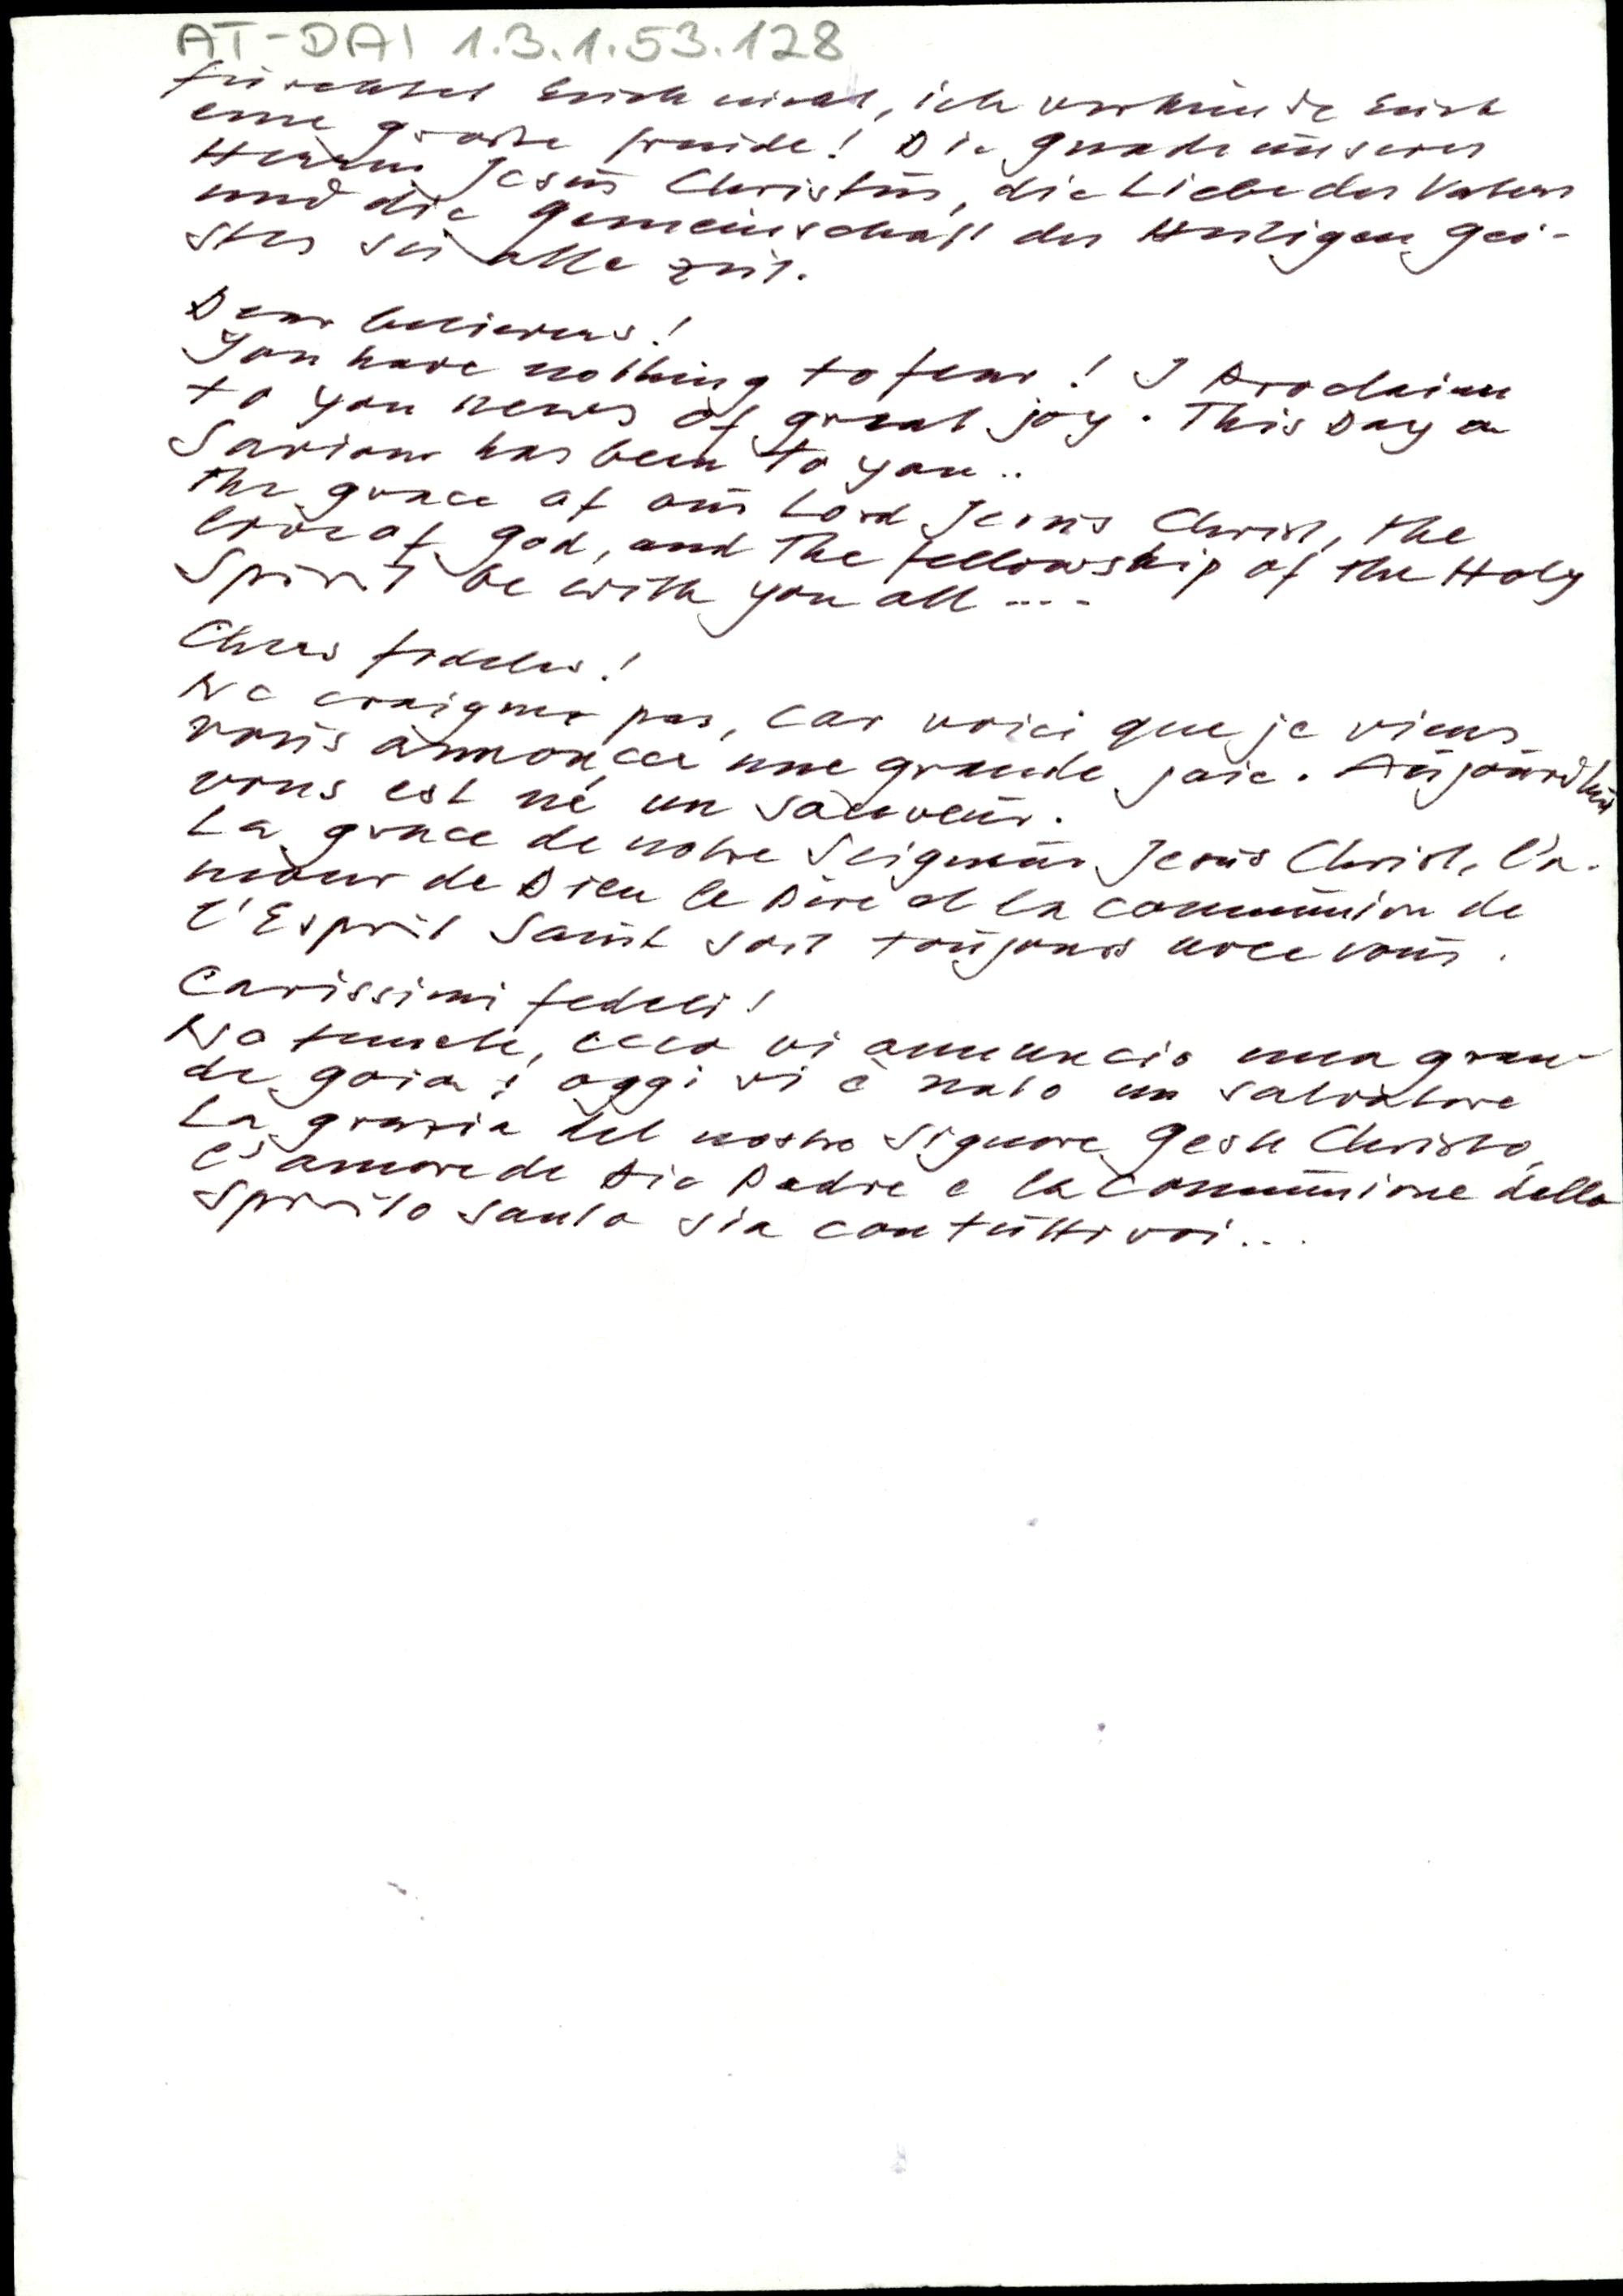 AT-DAI 1.3.1.53.128
fürchtet Euch nicht, ich verkünde Euch
eine große Freude! Die Gnade unseres
Herrn Jesus Christus, die Liebe des Vaters
und die Gemeinschaft des Heiligen Gei-
stes sei alle zeit.
Dear believers!
You have nothing to fear! I Proclaim
to you news of great joy. This Day a
Saviour has been to you..
the grace of our Lord Jesus Christ, the
love of God, and The fellowship of the Holy
Spirit be with you all ....
Chers fideles!
Ne craignez pas, car voici que je viens
vous annoncer une grande joie. Aujourd'hui
vous est né un sauveur.
La grace de notre Seigneur Jesus Christ, l'a-
mour de Dieu le Père et la communion de
l'Esprit Saint soit toujours avec vous.
Carissimi fedeli!
No temete, ecco vi annuncio una gran-
de goia: oggi vi è nato un salvatore
La grazia del nostro Signore Gesu Christo,
l'amore de Dio Padre e la communione dello
spirito santo sia con tutti voi...